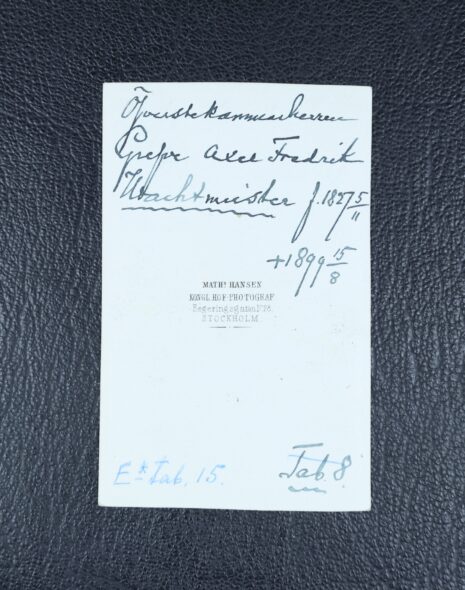 Öfverstekammarherren
Grefve Axel Fredrik
Wachtmeister f. 1827 5/11
+ 1899 15/8
MATHS HANSEN
KONGL. HOF-PHOTOGRAF.
Regeringsgatan
STOCKHOLM
E* Tab. 15.
Tab. 8.